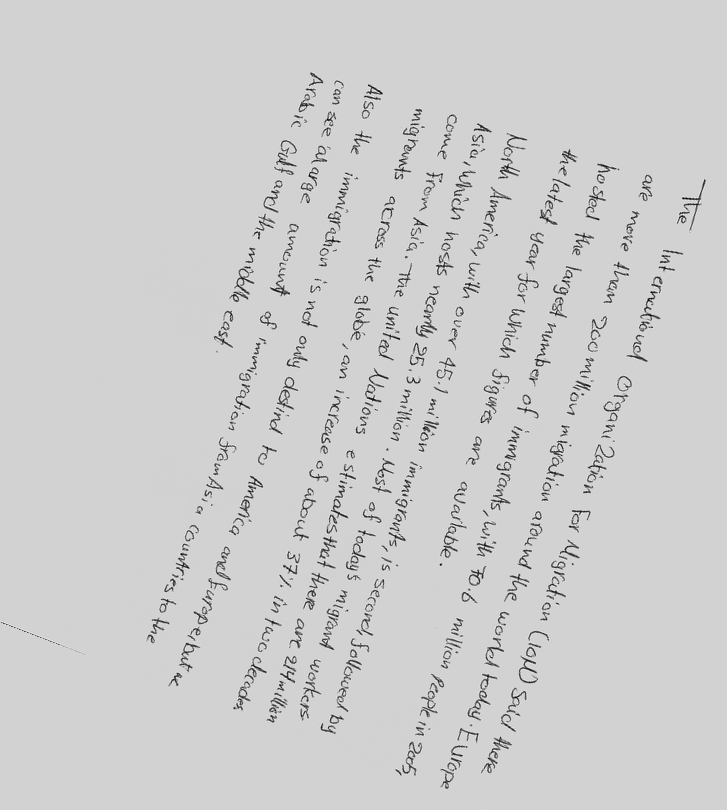 The International Organization for Migration (IOM) said there
are more than 200 million migration around the world today. Europe
hosted the largest number of immigrants, with 70.6 million people in 2005,
the latest year for which figures are available.
North America, with over 45.1 million immigrants, is second, followed by
Asia, which hosts nearly 25.3 million. Most of todays migrant workers
come from Asia. The united Nations estimates that there are 214 million
migrants across the globe, an increase of about 37% in two decades
Also the immigration is not only destind to America and Europe, but we
can see a large amount of immigration from Asia countries to the
Arabic Gulf and the middle east.